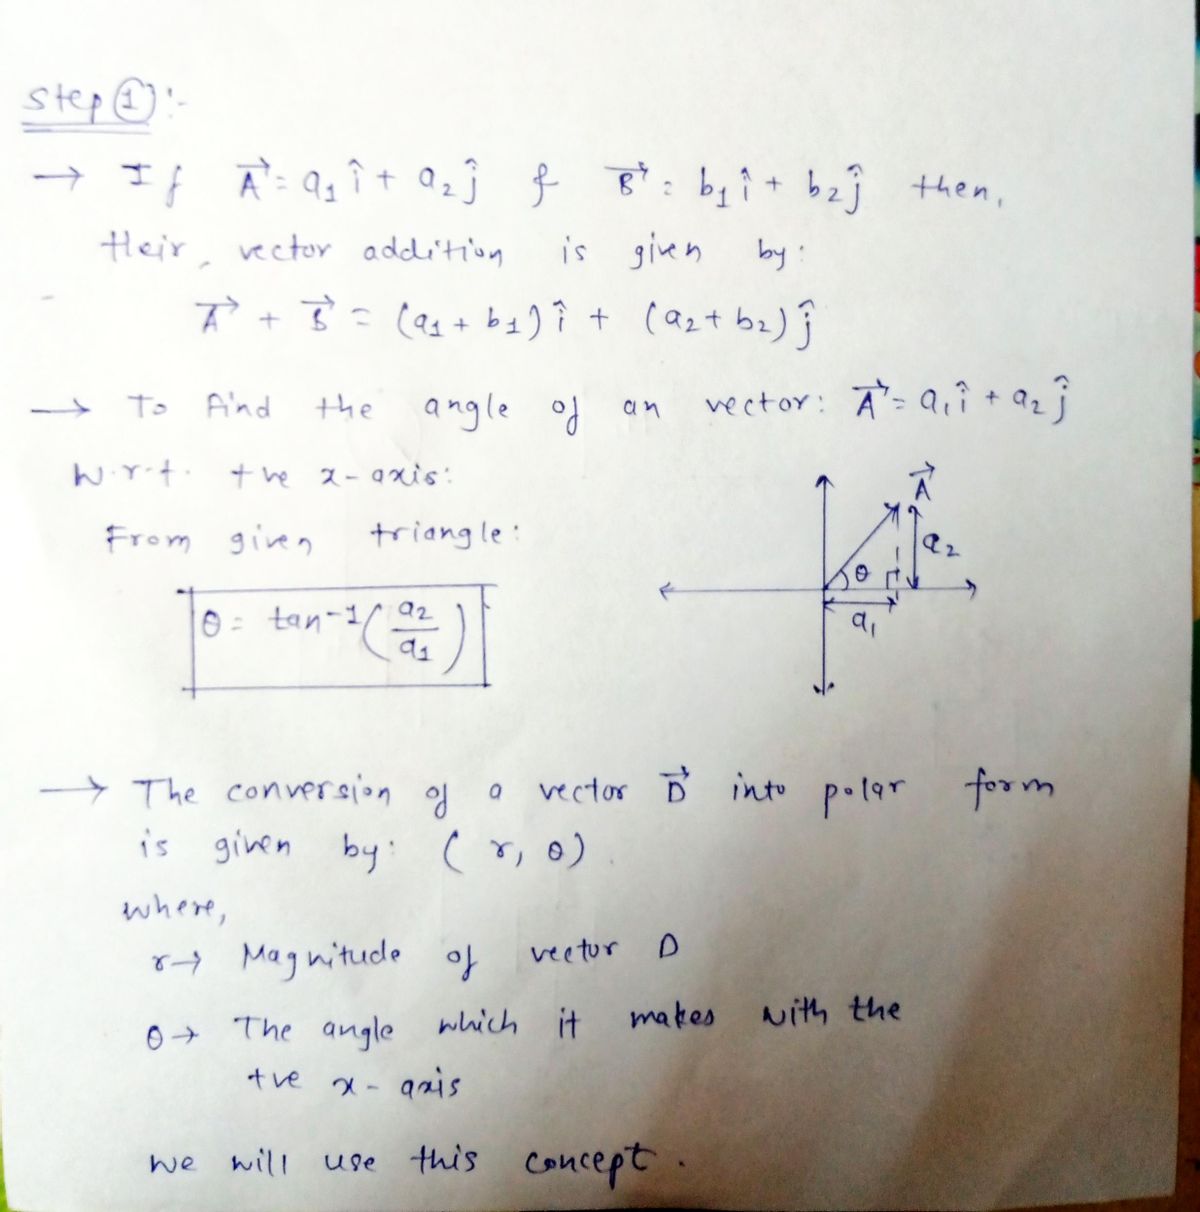 Step ①:-
→ If A⃗ = a₁ î + a₂ ĵ & B⃗ = b₁ î + b₂ ĵ then,
their, vector addition is given by:
A⃗ + B⃗ = (a₁ + b₁) î + (a₂ + b₂) ĵ
→ To find the angle of an vector: A⃗ = a₁ î + a₂ ĵ
w.r.t. +ve x-axis:
From given triangle:
A⃗
a₂
θ
a₁
θ = tan⁻¹(a₂/a₁)
→ The conversion of a vector D⃗ into polar form
is given by: (r, θ).
where,
r → Magnitude of vector D
θ → The angle which it makes with the
+ve x-axis
we will use this concept.